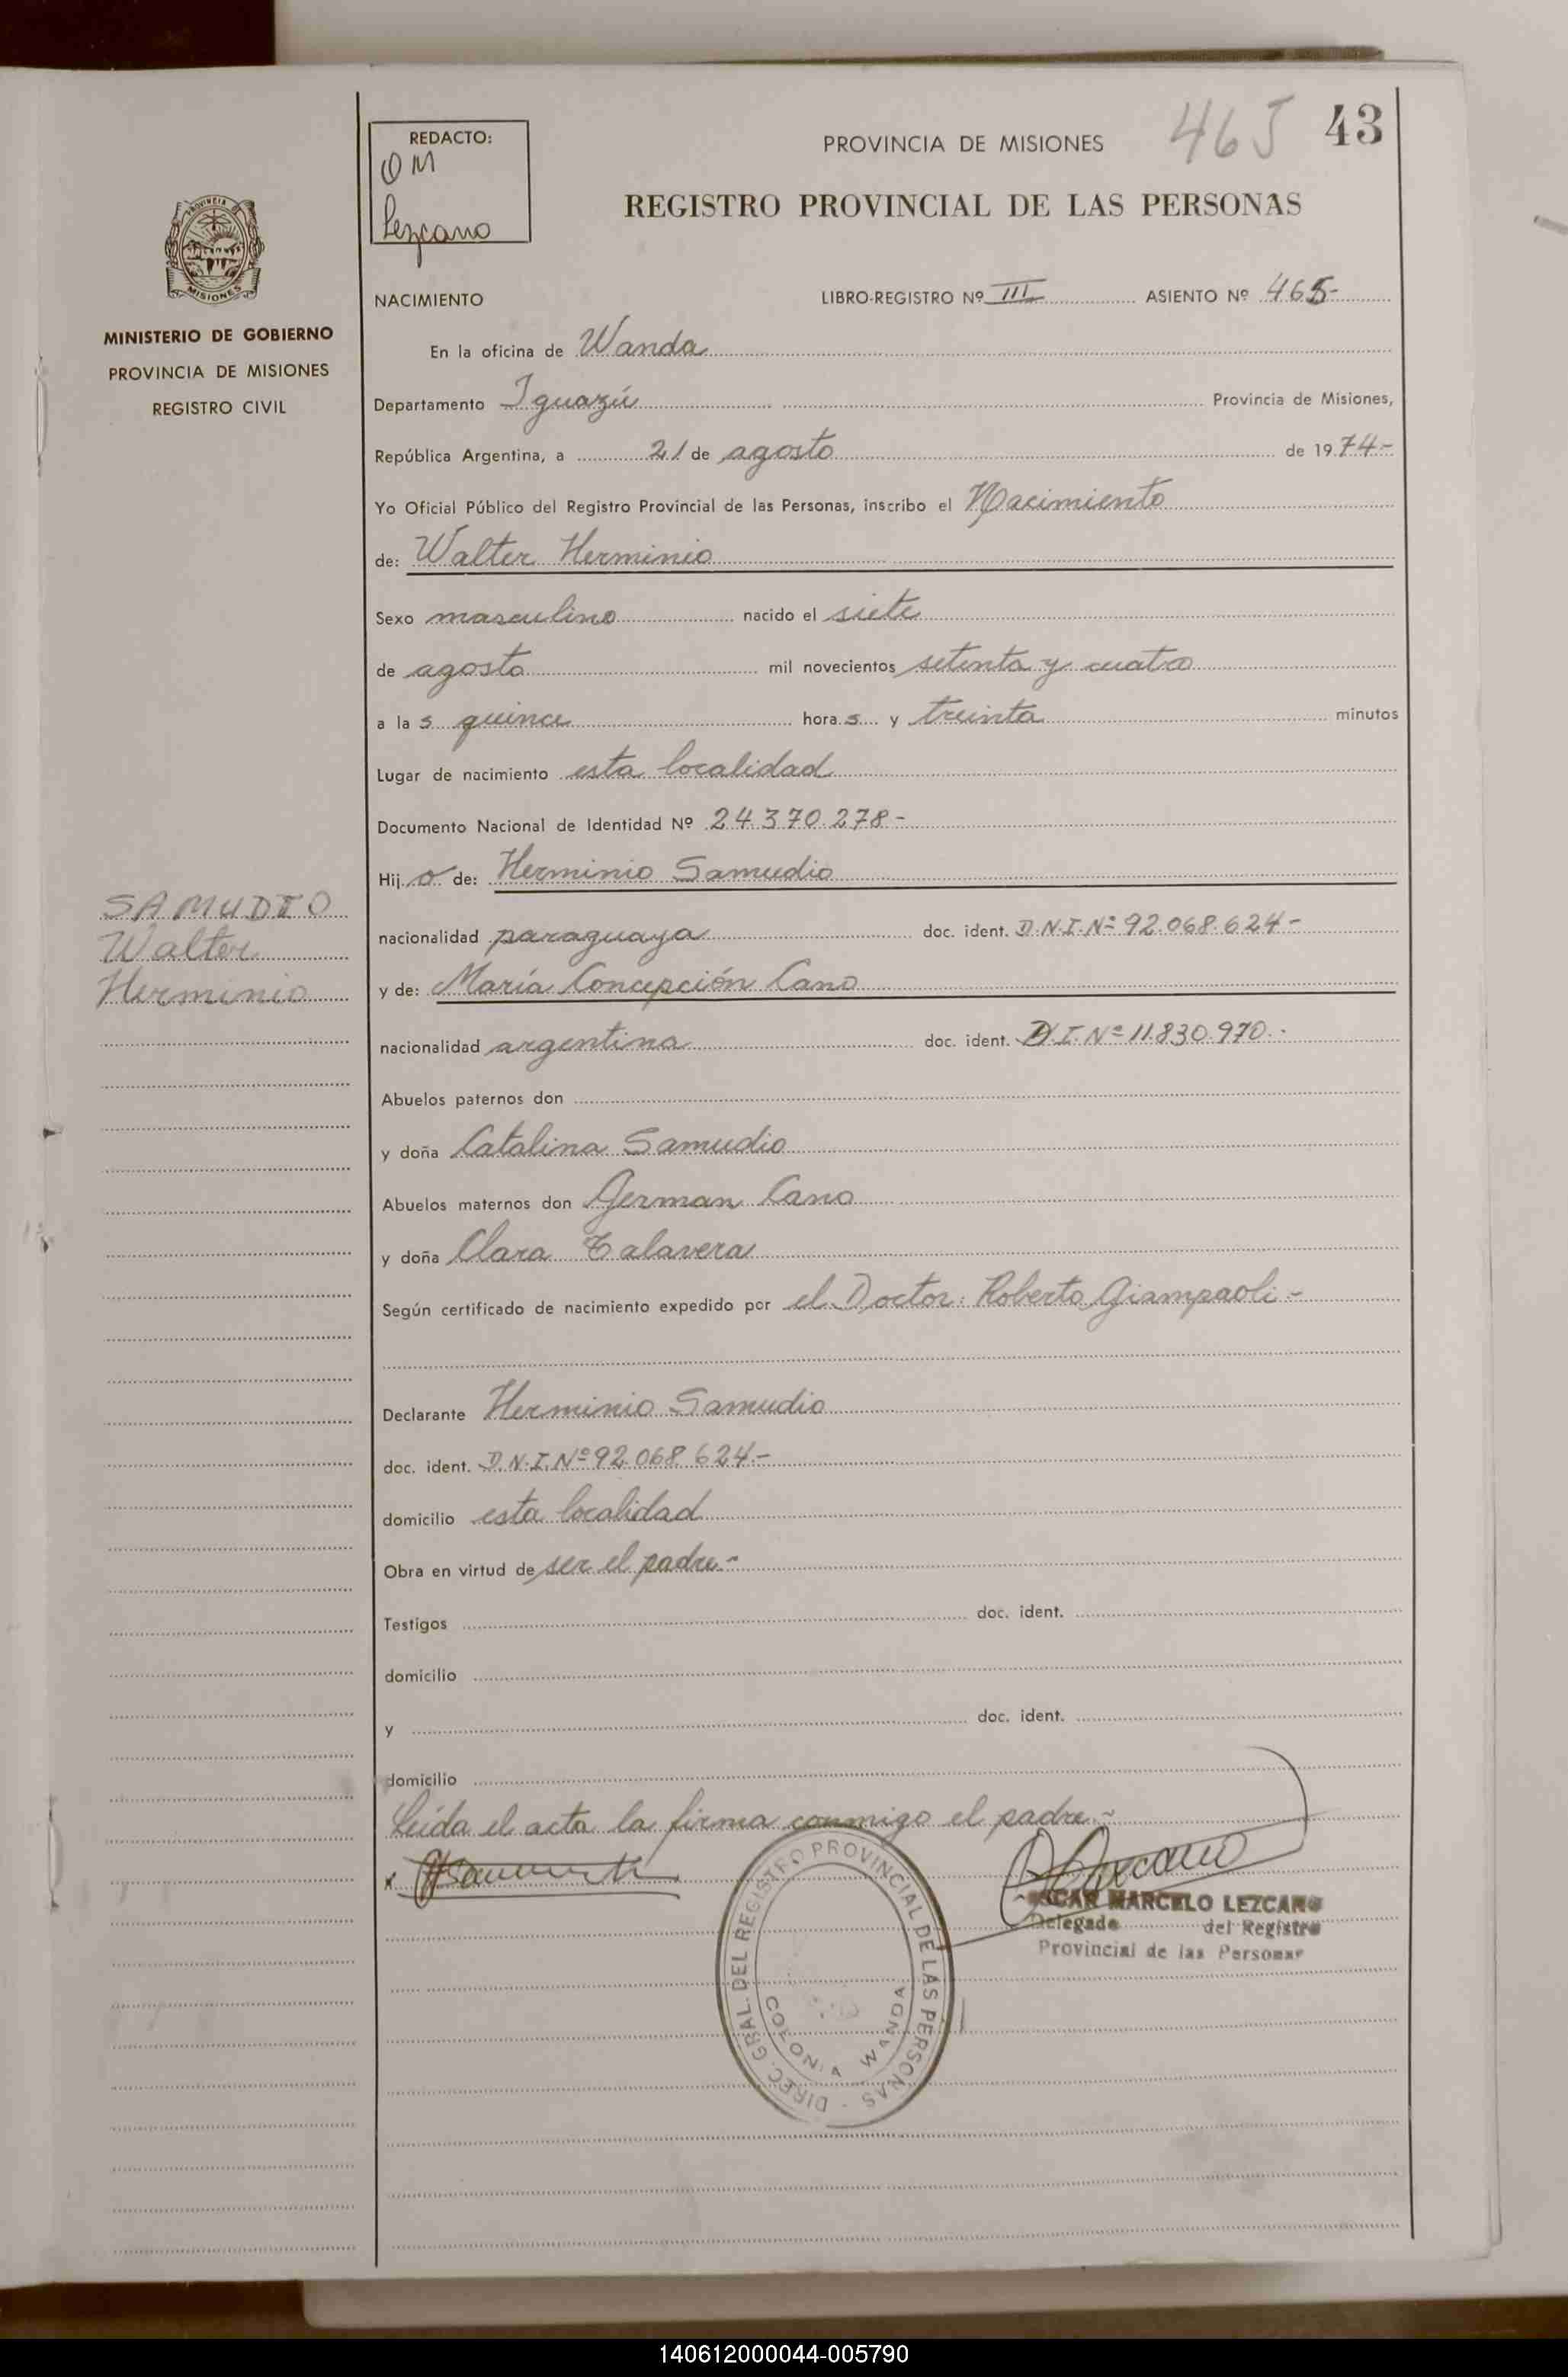 REDACTO:
OM
Lezcano
PROVINCIA DE MISIONES
465
43
REGISTRO PROVINCIAL DE LAS PERSONAS
PROVINCIA DE
MISIONES
MINISTERIO DE GOBIERNO
PROVINCIA DE MISIONES
REGISTRO CIVIL
NACIMIENTO LIBRO-REGISTRO Nº III ASIENTO Nº 465-
En la oficina de Wanda
Departamento Iguazú Provincia de Misiones,
República Argentina, a 21 de agosto de 1974-
Yo Oficial Público del Registro Provincial de las Personas, inscribo el Nacimiento
de: Walter Herminio
Sexo masculino nacido el siete
de agosto mil novecientos setenta y cuatro
a las quince horas y treinta minutos
Lugar de nacimiento esta localidad
Documento Nacional de Identidad Nº 24.370.278-
Hijo de: Herminio Samudio
SAMUDIO
Walter
Herminio
nacionalidad paraguaya doc. ident. D.N.I.Nº 92.068.624-
y de: María Concepción Cano
nacionalidad argentina doc. ident. D.I.Nº 11.830.970.-
Abuelos paternos don
y doña Catalina Samudio
Abuelos maternos don German Cano
y doña Clara Talavera
Según certificado de nacimiento expedido por el Doctor: Roberto Giampaoli-
Declarante Herminio Samudio
doc. ident. D.N.I.Nº 92.068.624-
domicilio esta localidad
Obra en virtud de ser el padre-
Testigos doc. ident.
domicilio
y doc. ident.
domicilio
Leída el acta la firma conmigo el padre-
OSCAR MARCELO LEZCANO
Delegado del Registro
Provincial de las Personas
DIREC. GRAL. DEL REGISTRO PROVINCIAL DE LAS PERSONAS -
COLONIA WANDA
140612000044-005790